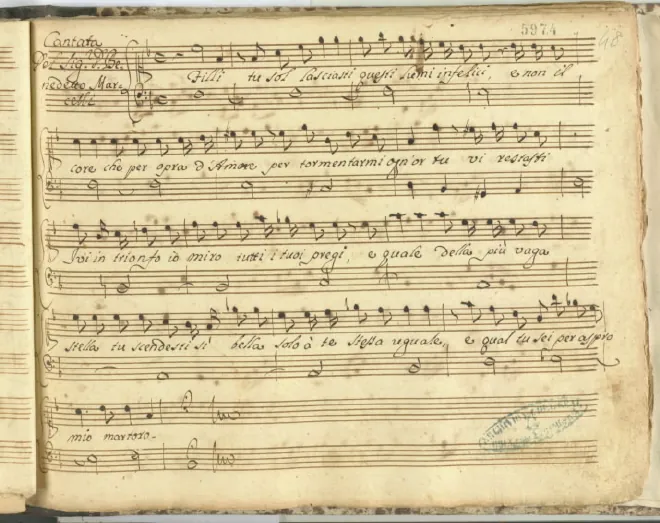 Cantata
Del Sig.r Be
nedetto Mar=
celli
5974
48
Filli tu sol lasciasti questi lumi infelici, e non il
core che per opra d'Amore per tormentarmi ogn'or tu vi restasti
ivi in trionfo io miro tutti i tuoi pregi, e quale della più vaga
stella tu scendesti sì bella solo à te stessa uguale, e qual tu sei per aspro
mio martoro.